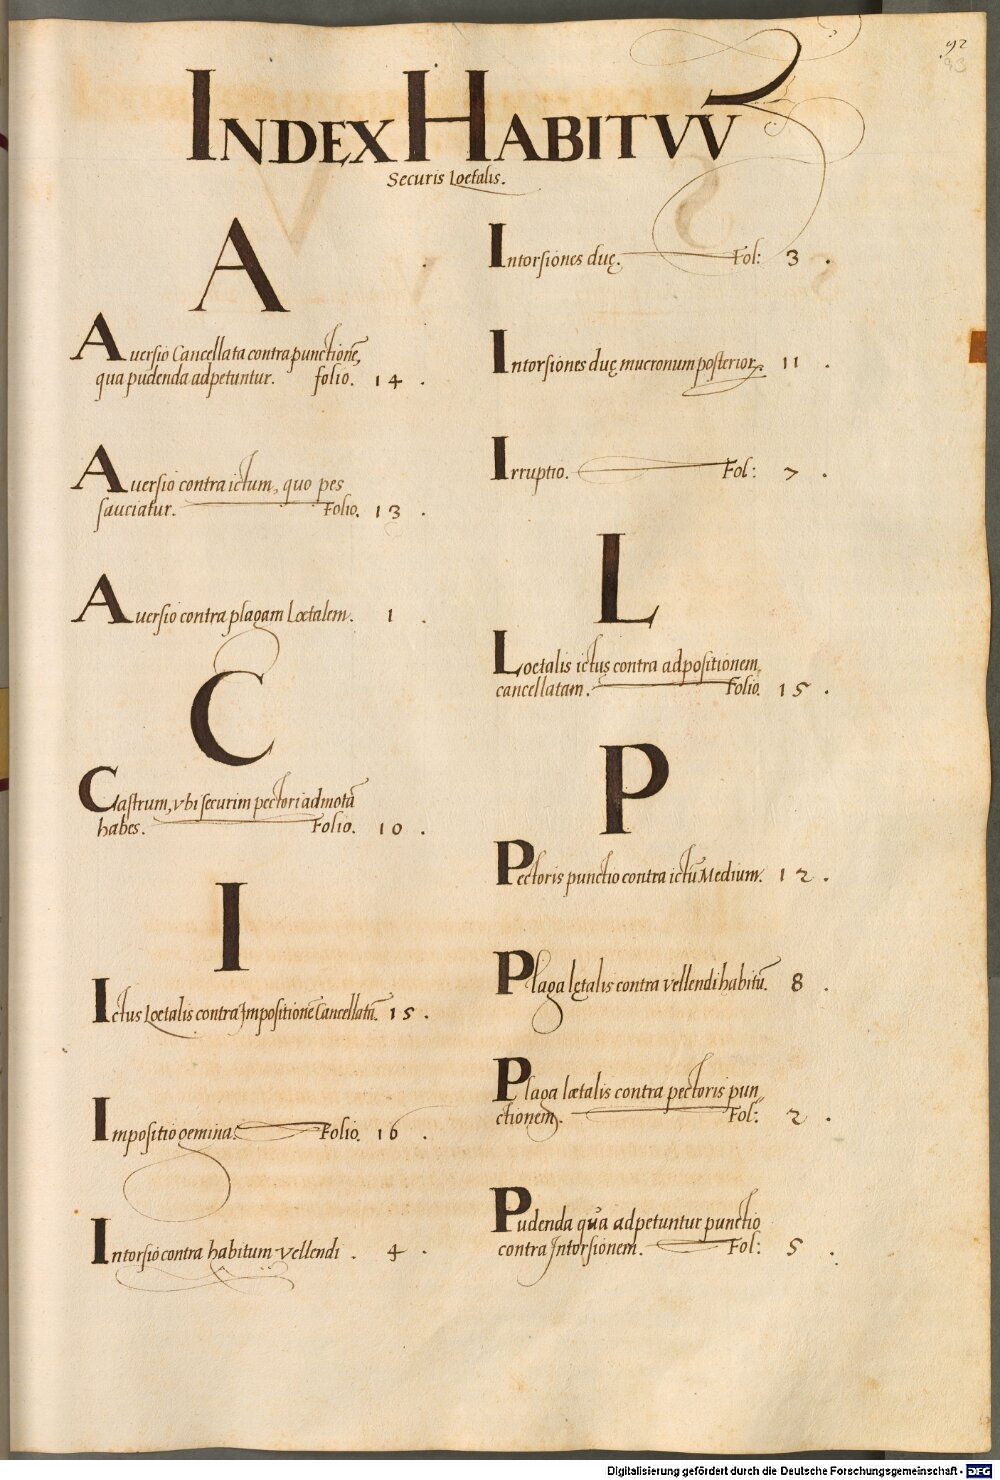 92
93
INDEX HABITVV
Securis Loetalis.
A
Aversio Cancellata contra punctionẽ,
qua pudenda adpetuntur. folio. 14.
Aversio contra ictum, quo pes
sauciatur. Folio. 13.
Aversio contra plagam Loetalem. 1.
C
Castrum, vbi securim pectori admotã
habes. Folio. 10.
I
Ictus Loetalis contra Impositionẽ Cancellatũ. 15.
Impositio gemina. Folio. 16.
Intorsio contra habitum vellendi. 4.
Intorsiones duę. Fol: 3.
Intorsiones duę mucronum posterior. 11.
Irruptio. Fol: 7.
L
Loetalis ictus contra adpositionem
cancellatam. Folio. 15.
P
Pectoris punctio contra ictũ Medium. 12.
Plaga lętalis contra vellendi habitũ. 8.
Plaga lætalis contra pectoris pun„
ctionem. Fol: 2.
Pudenda qua adpetuntur punctio
contra Intorsionem. Fol: 5.
Digitalisierung gefördert durch die Deutsche Forschungsgemeinschaft - DFG